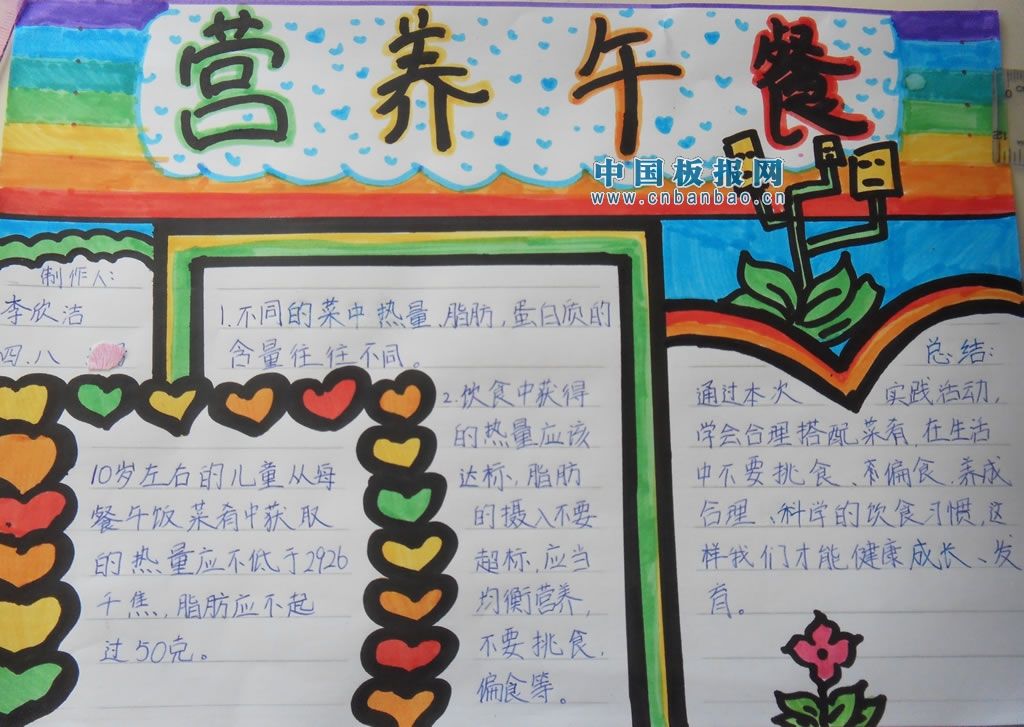 营养午餐
中国板报网
www.cnbanbao.cn
制作人:
李欣洁
四.八
1.不同的菜中热量、脂肪,蛋白质的
含量往往不同。
2.饮食中获得
的热量应该
达标,脂肪
的摄入不要
超标,应当
均衡营养,
不要挑食,
偏食等。
10岁左右的儿童从每
餐午饭菜肴中获取
的热量应不低于2926
千焦,脂肪应不起
过50克。
总结:
通过本次 实践活动,
学会合理搭配菜肴,在生活
中不要挑食、偏食.养成
合理、科学的饮食习惯,这
样我们才能健康成长、发
育。